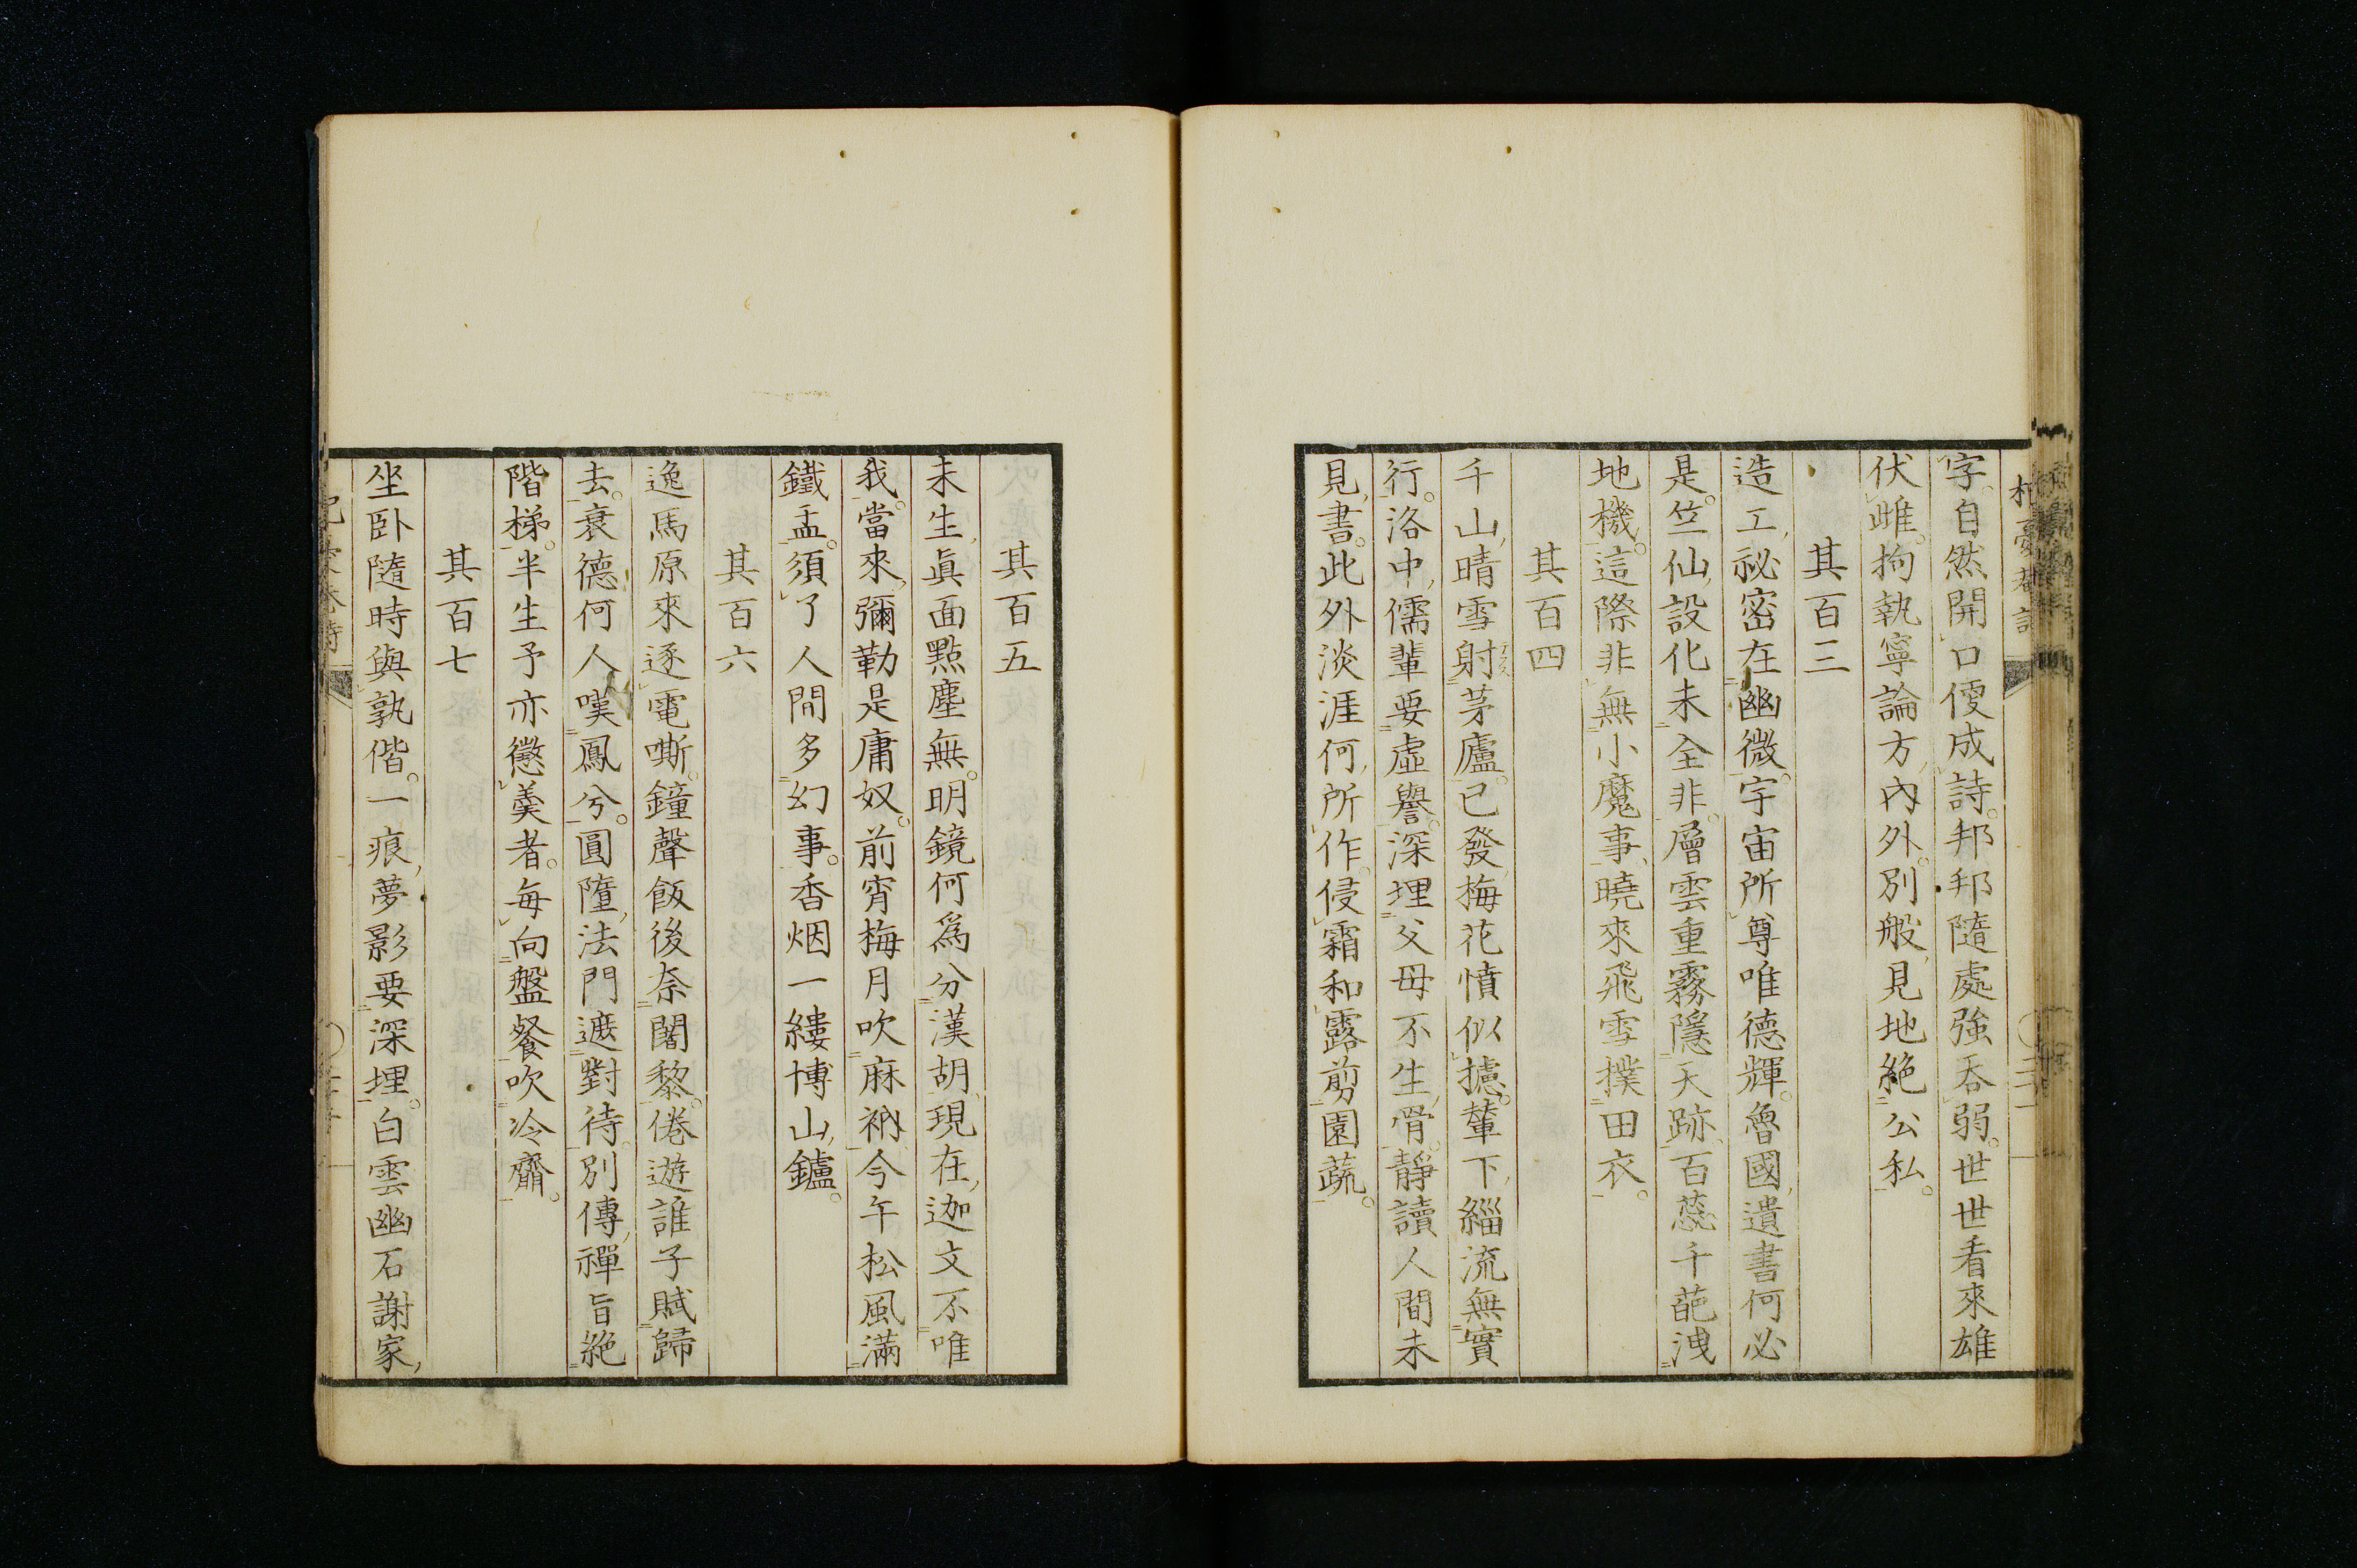 字自然開口便成詩。邦邦隨處強吞弱。世世看來雄
伏雌。拘執寧論方內外。別般見地絕公私。
其百三
造工祕密在幽微。宇宙所尊唯德輝。魯國遺書何必
是。竺仙設化未全非。層雲重霧隱天跡。百蕊千葩洩
地機。這際非無小魔事。曉來飛雪撲田衣。
其百四
千山晴雪射茅廬。已發梅花憤似攄。輦下緇流無實
行。洛中儒輩要虛譽。深埋父母不生骨。靜讀人間未
見書。此外淡涯何所作。侵霜和露剪園蔬。
其百五
未生眞面點塵無。明鏡何爲分漢胡。現在迦文不唯
我。當來彌勒是庸奴。前宵梅月吹麻衲。今午松風滿
鐵盂。須了人間多幻事。香烟一縷博山鑪。
其百六
逸馬原來逐電嘶。鐘聲飯後奈闍黎。倦遊誰子賦歸
去。衰德何人嘆鳳兮。圓墮法門遮對待。別傳禪旨絕
階梯。半生予亦懲羹者。每向盤餐吹冷齏。
其百七
坐臥隨時與孰偕。一痕夢影要深埋。白雲幽石謝家